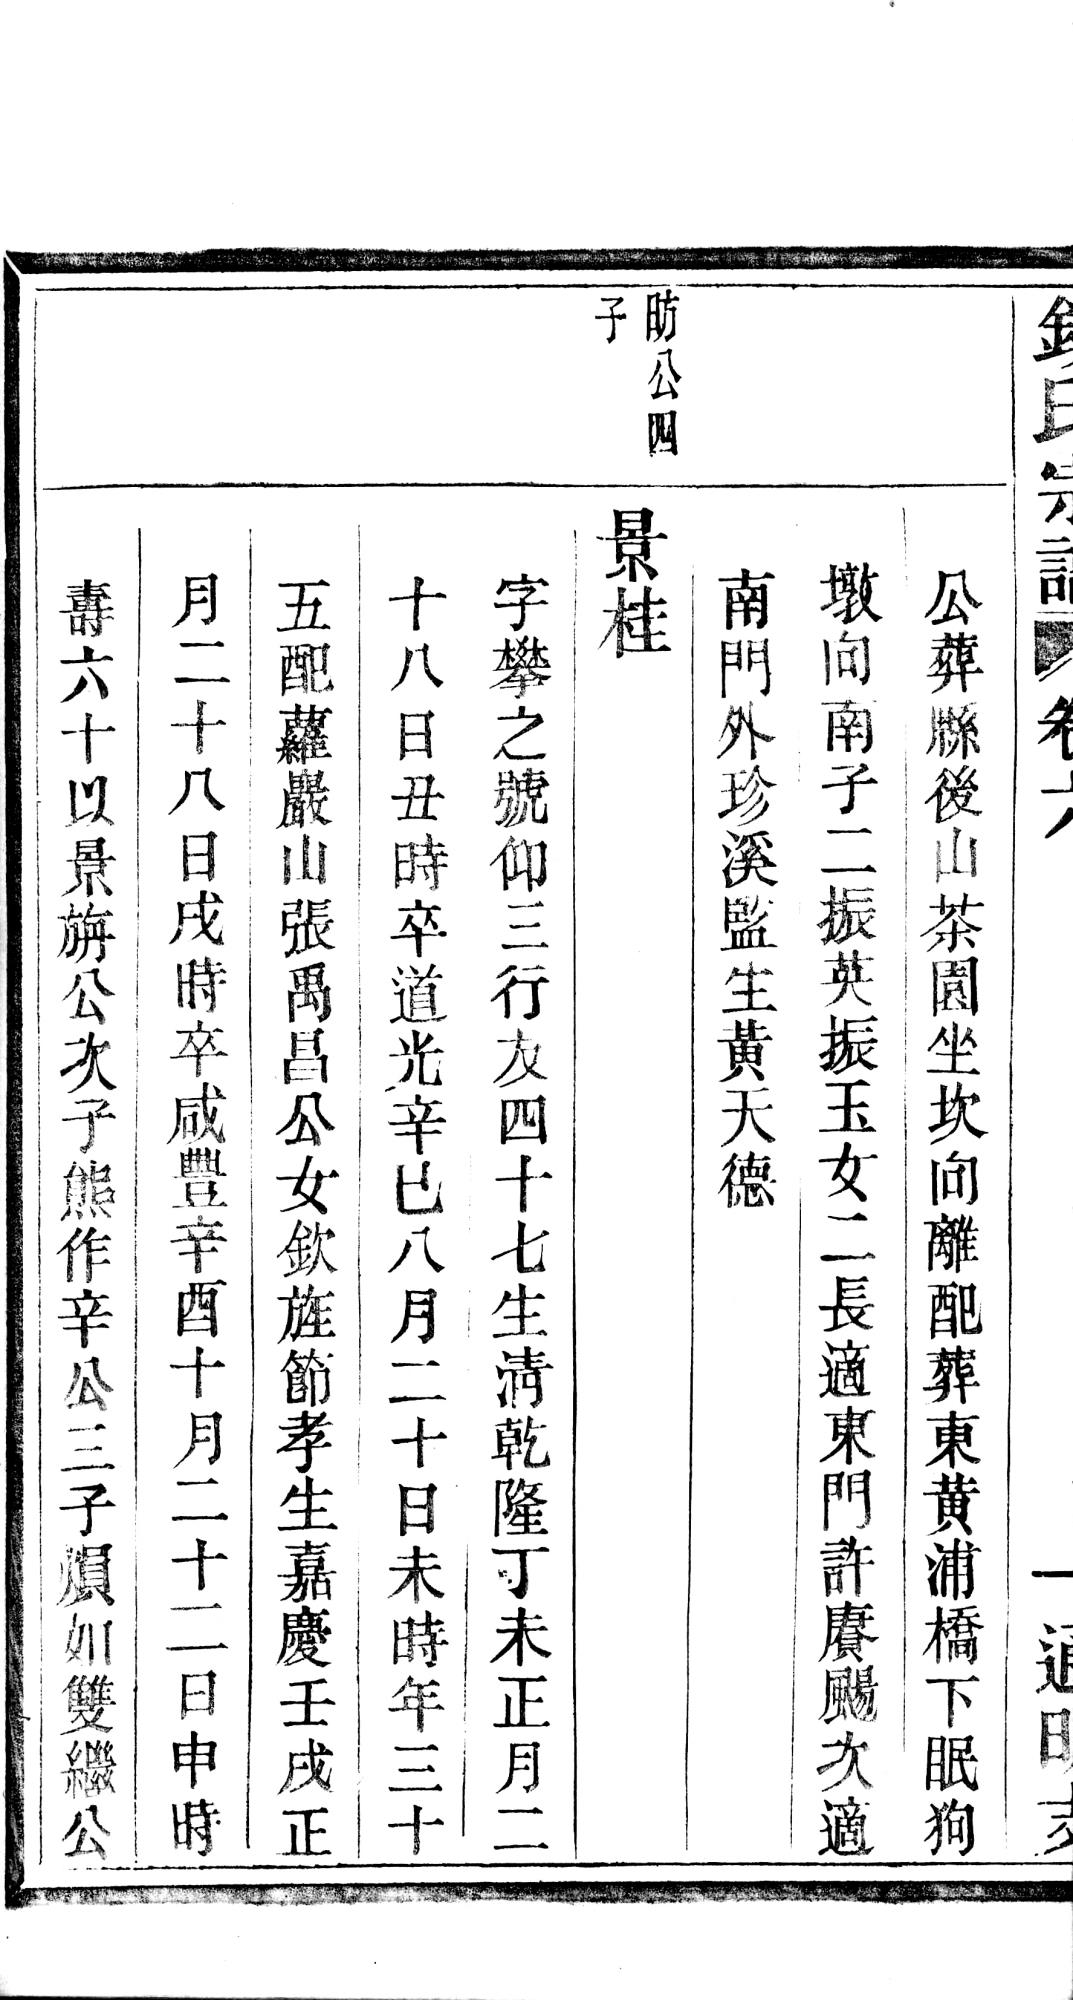 錢氏宗譜 卷六 一 通明支
公葬縣後山茶園坐坎向離配葬東黄浦橋下眠狗
墩向南子二振英振玉女二長適東門許賡颺次適
南門外珍溪監生黄天德
昉公四
子
景桂
字攀之號仰三行友四十七生清乾隆丁未正月二
十八日丑時卒道光辛巳八月二十日未時年三十
五配蘿巖山張禹昌公女欽旌節孝生嘉慶壬戌正
月二十八日戌時卒咸豐辛酉十月二十二日申時
壽六十以景旃公次子熊作辛公三子熉如雙繼公